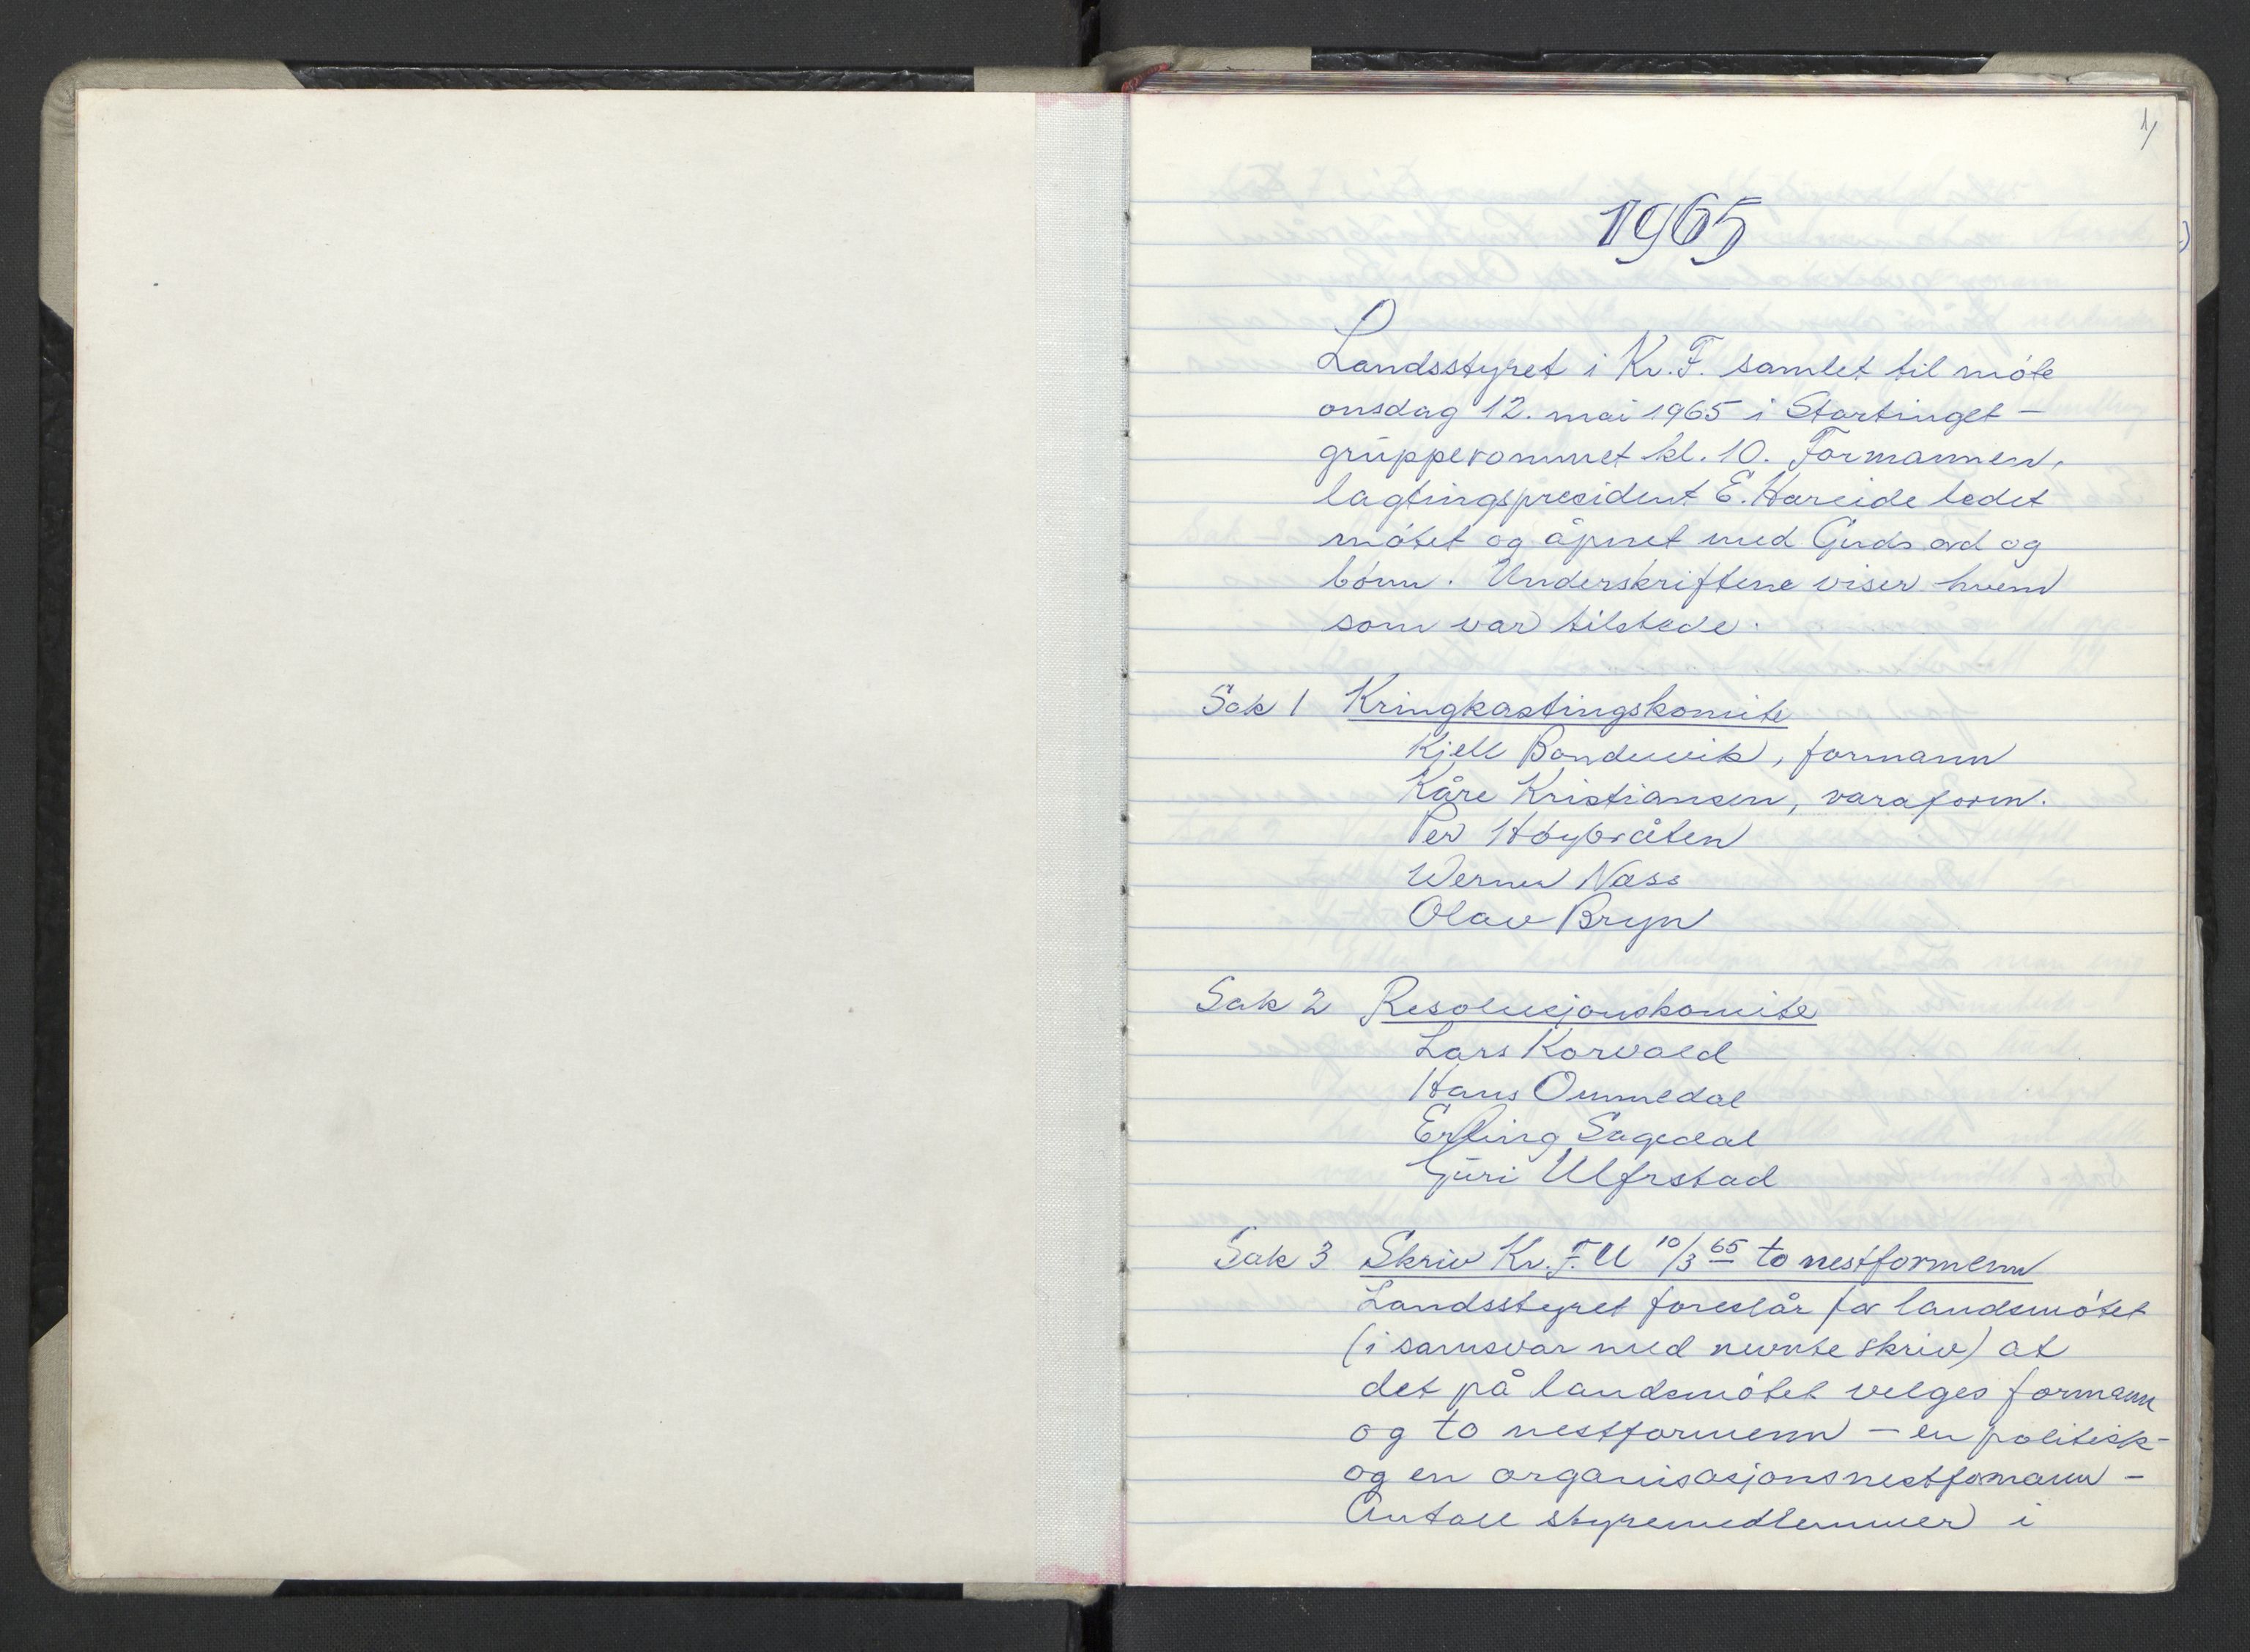 1)
1965
Landsstyret i Kr.F. samlet til møte
onsdag 12. mai 1965 i Stortinget –
grupperommet kl. 10. Formannen,
lagtingspresident E. Hareide ledet
møtet og åpnet med Guds ord og
bønn. Underskriftene viser hvem
som var tilstede.
Sak 1 Kringkastingskomite
Kjell Bondevik, formann
Kåre Kristiansen, varaform.
Per Høybråten
Werner Næss
Olav Bryn
Sak 2 Resolusjonskomite
Lars Korvald
Hans Ommedal
Erling Sagedal
Guri Ulfrstad
Sak 3 Skriv Kr.F.U 10/3 65 to nestformenn
Landsstyret foreslår for landsmøtet
(i samsvar med nevnte skriv) at
det på landsmøtet velges formann
og to nestformenn – en politisk-
og en organisasjonsnestfomann –
Antall styremedlemmer i